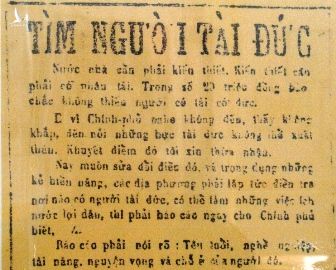 TÌM NGƯỜI TÀI ĐỨC
Nước nhà cần phải kiến thiết. Kiến thiết cần
phải có nhân tài. Trong số 20 triệu đồng bào
chắc không thiếu người có tài có đức.
E vì Chính-phủ nghe không đến, thấy không
khắp, đến nỗi những bực tài đức không thể xuất
thân. Khuyết điểm đó tôi xin thừa nhận.
Nay muốn sửa đổi điều đó, và trọng dụng những
kẻ hiền năng, các địa phương phải lập tức điều tra
nơi nào có người tài đức, có thể làm những việc ích
nước lợi dân, thì phải báo cáo ngay cho Chính phủ
biết.
Báo cáo phải nói rõ : Tên tuổi, nghề nghiệp,
tài năng, nguyện vọng và chỗ ở của người đó.